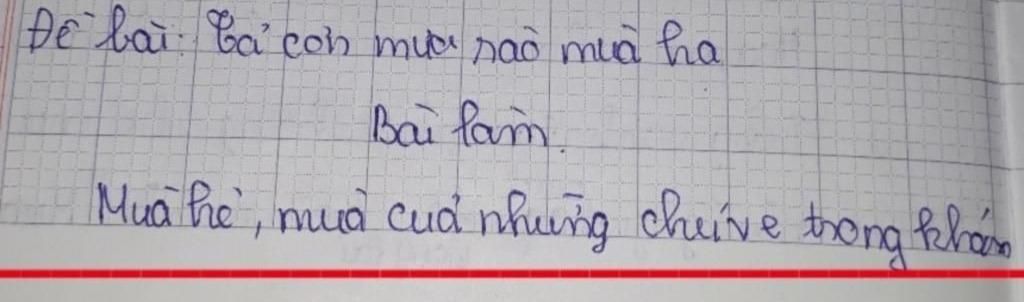 Đề bài: Tả cơn mưa rào mùa hạ
Bài làm.
Mùa hè, mùa của những chùm ve trong khóm